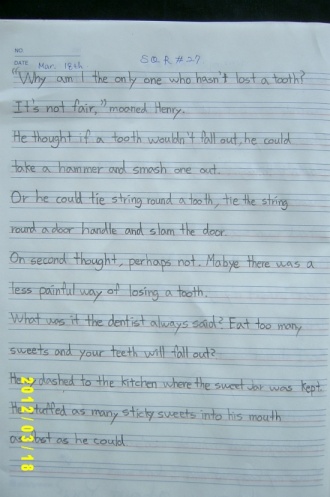 NO.
DATE Mar. 18th SQR #27
"Why am I the only one who hasn't lost a tooth?
It's not fair," moaned Henry.
He thought if a tooth wouldn't fall out, he could
take a hammer and smash one out.
Or he could tie string round a tooth, tie the string
round a door handle and slam the door.
On second thought, perhaps not. Mabye there was a
less painful way of losing a tooth.
What was it the dentist always said? Eat too many
sweets and your teeth will fall out?
He dashed to the kitchen where the sweet jar was kept.
He stuffed as many sticky sweets into his mouth
as fast as he could.
2012/03/18